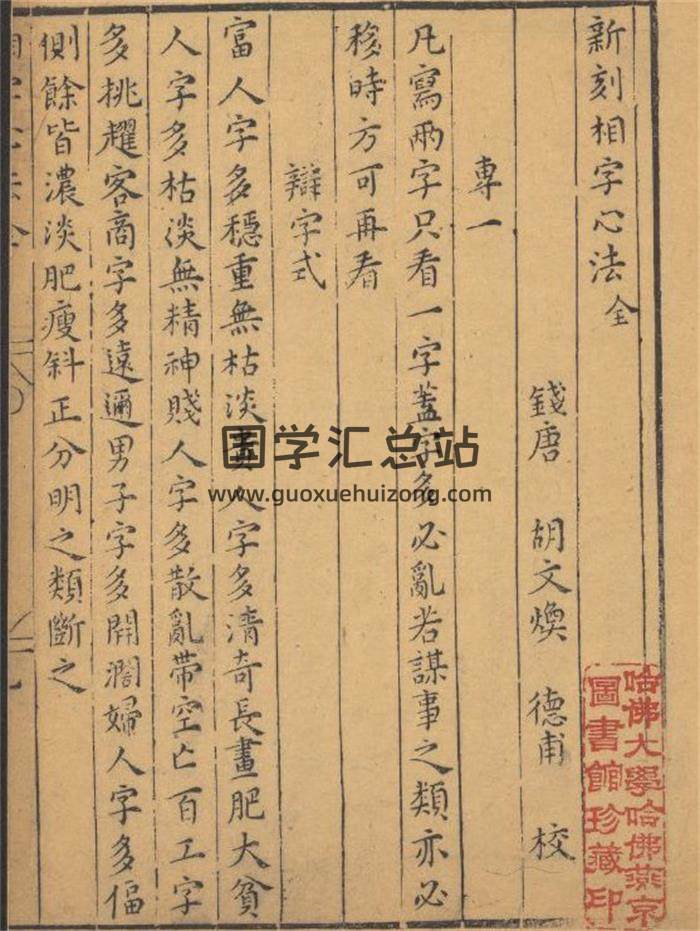 新刻相字心法全
錢唐 胡文煥 德甫 校
專一
凡寫兩字只看一字蓋字多必亂若謀事之類亦必
移時方可再看
辯字式
富人字多穩重無枯淡人字多清奇長畫肥大貧
人字多枯淡無精神賤人字多散亂帶空亡百工字
多挑趯客商字多遠邇男子字多開濶婦人字多偪
側餘皆濃淡肥瘦斜正分明之類斷之
国学汇总站
www.guoxuehuizong.com
哈佛大學哈佛燕京
圖書館珍藏印